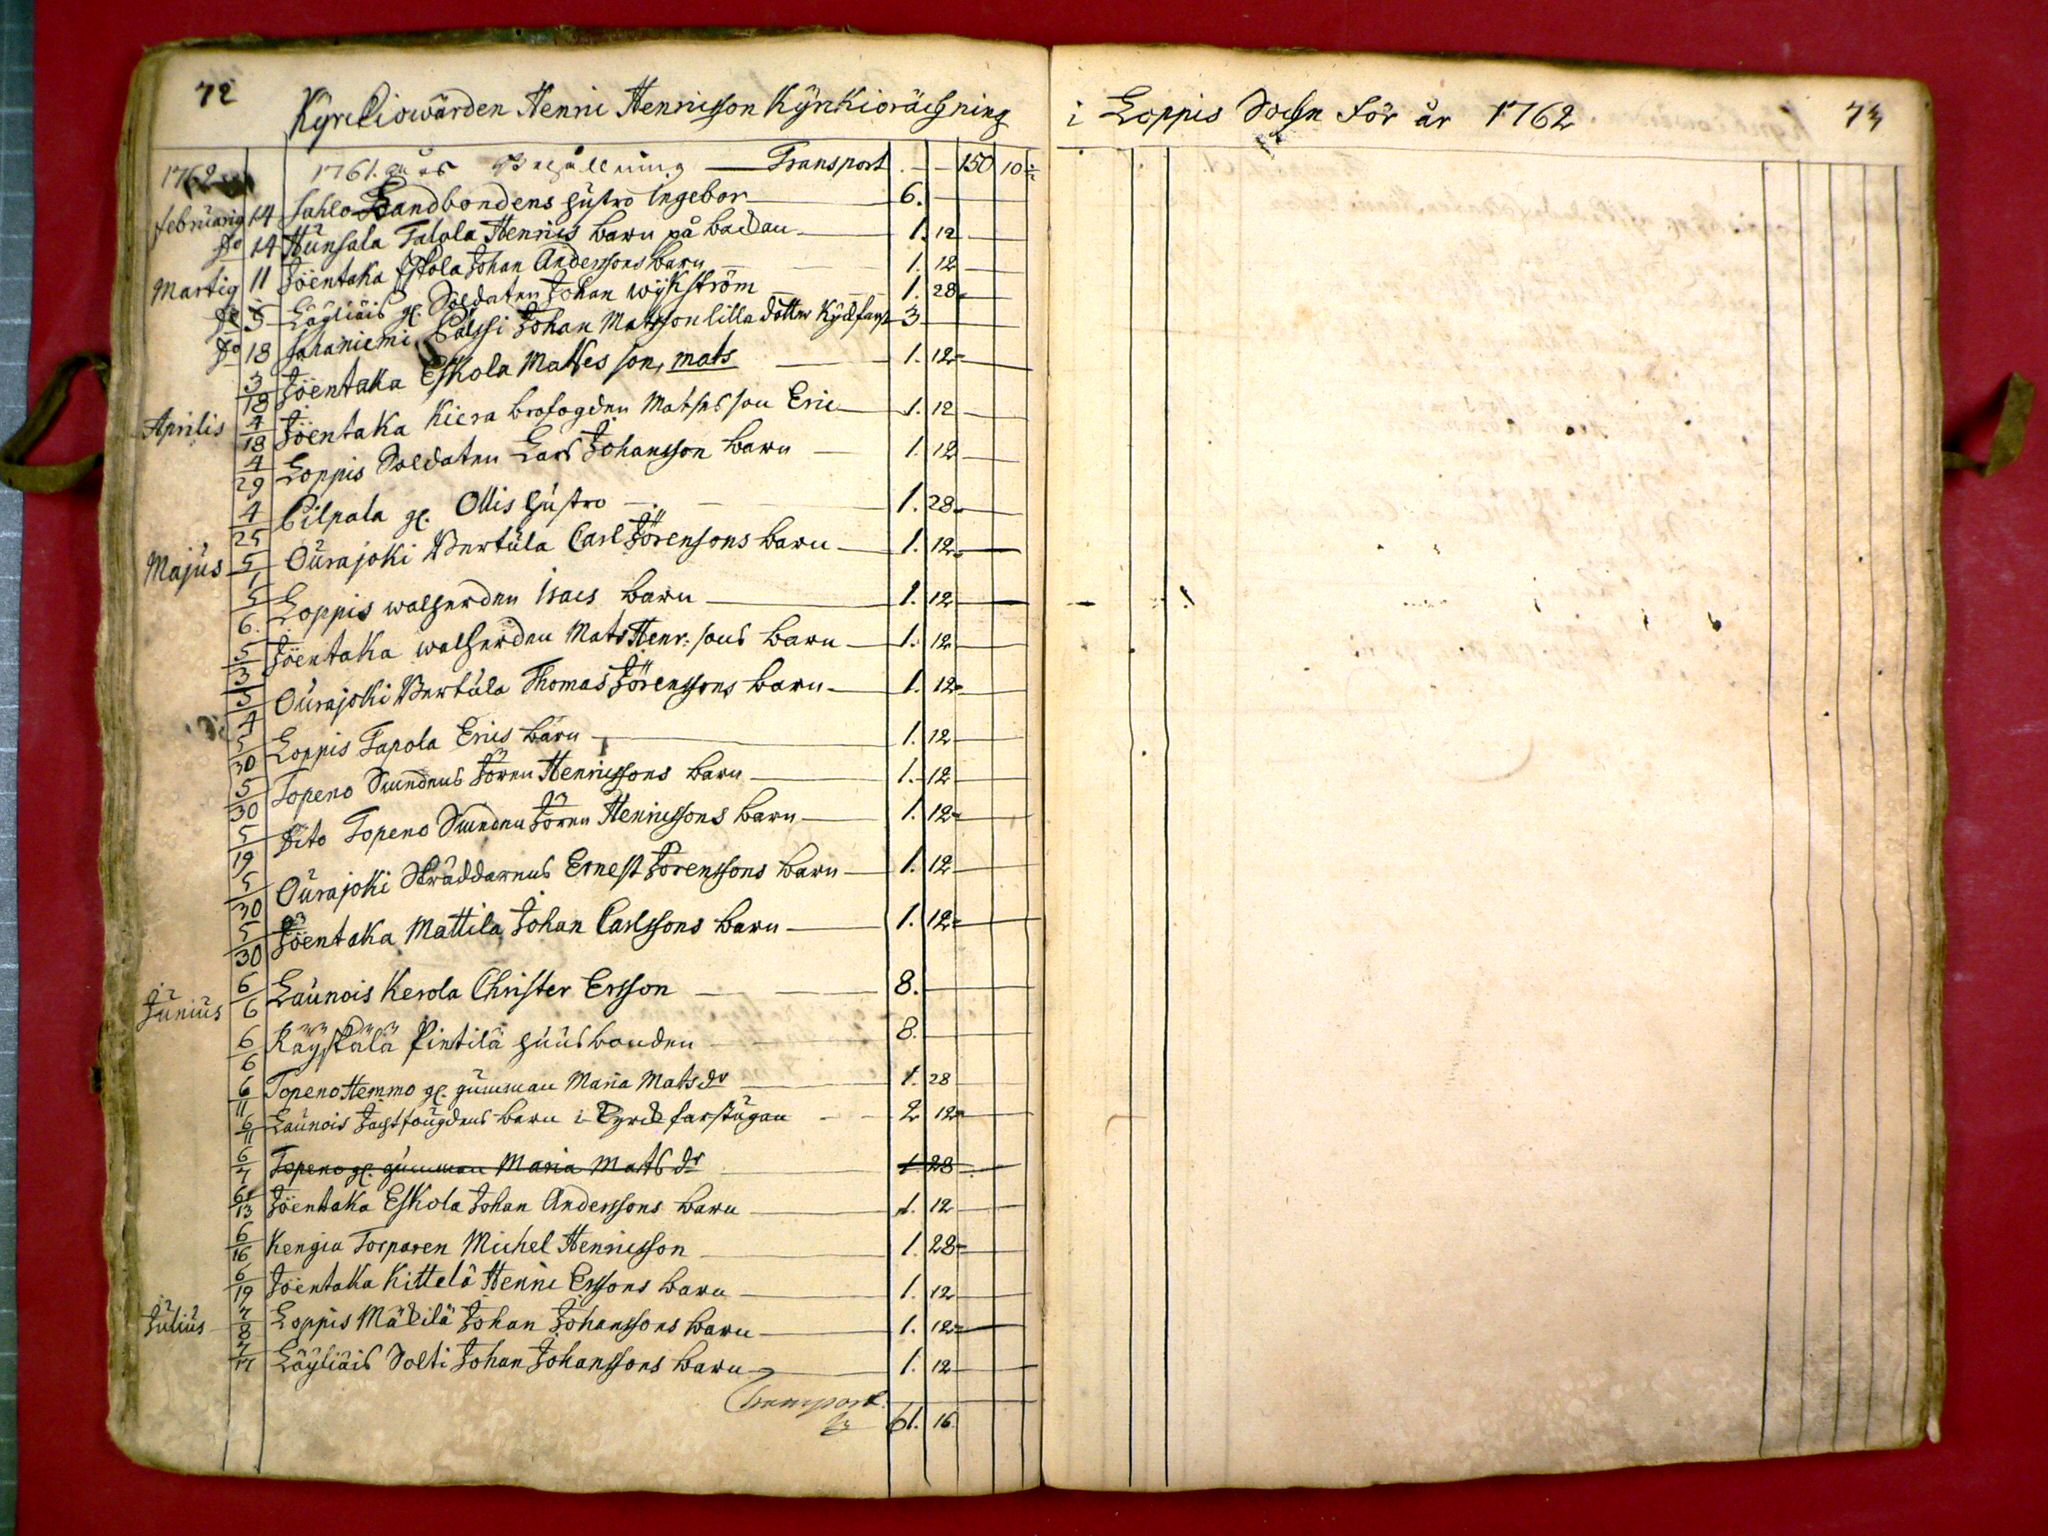 72
Kyrckiowärden Henric Henricsson Kyrkioräckning
i Loppis Sochn För år 1762
73
1762 1761. åhrs Behållning — Transport . — 150 10
februarij 14 Sahlo Landbondens hustro Ingebor 6.
do 14 Hunsala Talola Henrics barn på backan 1. 12
Martij 11 Jöentaka Eskola Johan Anderssons barn 1. 12
do 5 Läyliäis gl. Soldaten Johan Wykström 1. 28
do 18 Sajaniemi Pässi Johan Matsson lilla dotter 3
3/18 Jöentaka Eskola Mattes son, mats 1. 12
Aprilis 4/18 Jöentaka Kiera brofogden Matses son Eric 1. 12
4/29 Loppis Soldaten Lars Johansson barn 1. 12
4/25 Pilpala gl. Ollis hustro 1. 28
Majus 5/1 Ourajoki Bertula Carl Jörensons barn 1. 12
5/6. Loppis walherden Isacs barn 1. 12
5/3 Jöentaka walherden Mats Henr: sons barn 1. 12
5/4 Ourajoki Bertula Thomas Jörenssons barn 1. 12
5/30 Loppis Tapola Erics barn 1. 12
5/30 Topeno Smedens Jören Henricssons barn 1. 12
5/19 Dito Topeno Smeden Jören Henricssons barn 1. 12
5/30 Ourajoki Skräddarens Ernest Jörenssons barn 1. 12
5/30 Jöentaka Mattila Johan Carlssons barn 1. 12
Junius 6/6 Launois Kerola Christer Ersson 8.
6/6 Räyskälä Pietilä huusbonden 8.
6/11 Topeno Hemmo gl. gumman Maria Matsdr 1. 28
6/11 Launois Jachtfougdens barn i Kyrckfarstugan 2 12
6/7 Topeno gl. gumman Maria Matsdr 1 28
6/13 Jöentaka Eskola Johan Anderssons barn 1. 12
6/16 Kengia Torparen Michel Henricsson 1. 28
6/19 Jöentaka Kittelä Henric Erssons barn 1. 12
Julius 7/8 Loppis Mäkilä Johan Johanssons barn 1. 12
7/17 Läyliäis Solti Johan Johanssons barn 1. 12
Transport. 61. 16.